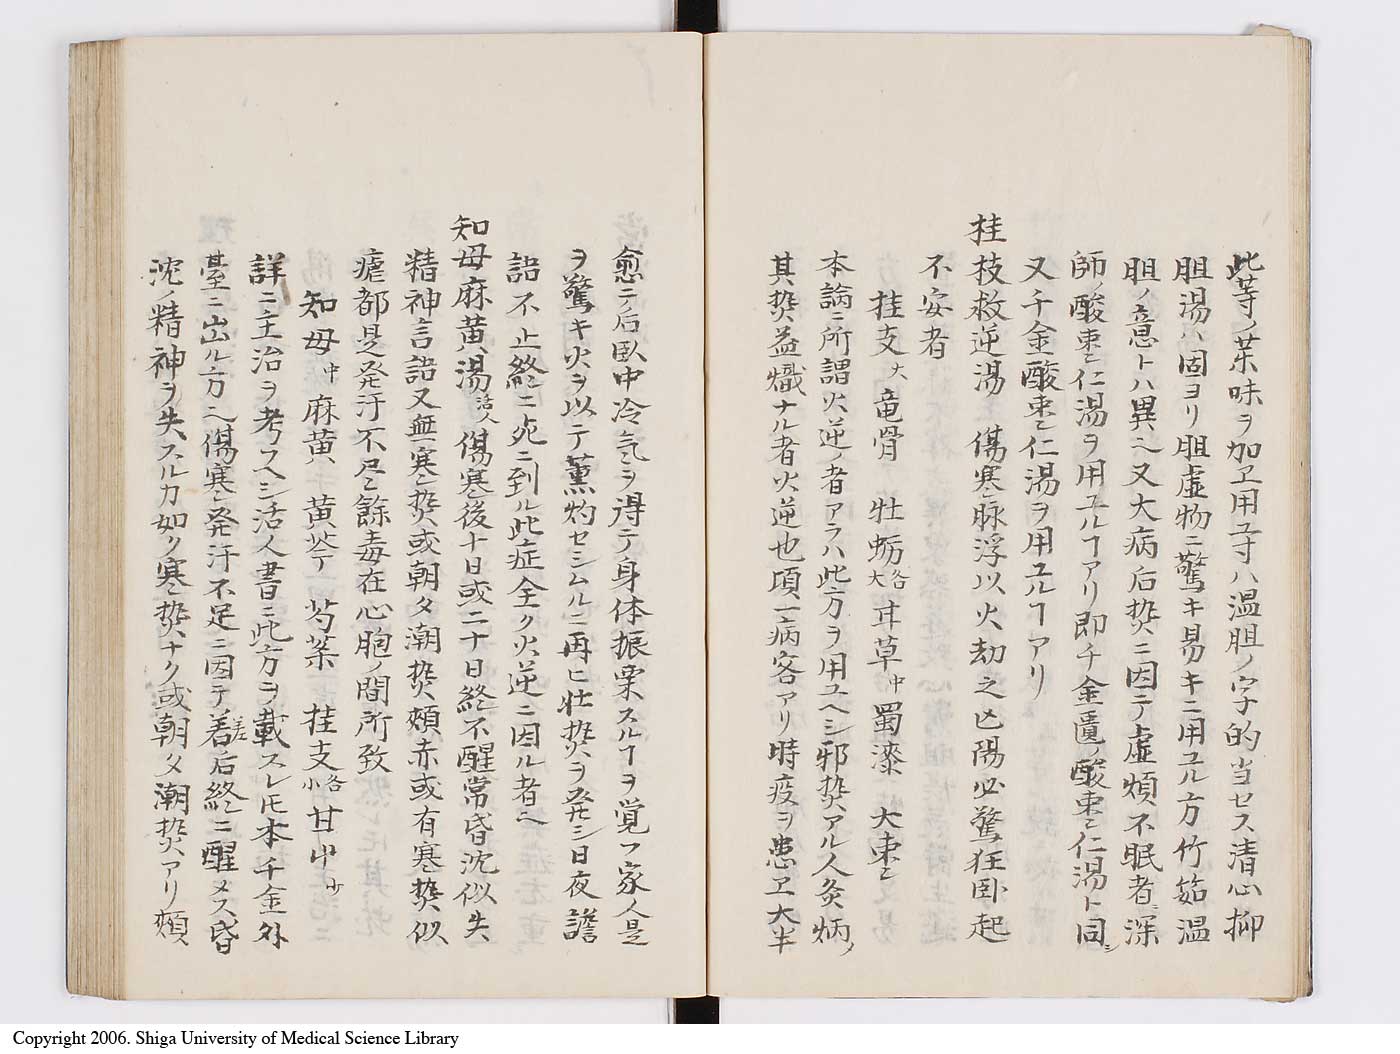 此等ノ茱味ヲ加ヱ用ユ寸ハ温胆ノ字的当セス清心抑
胆湯ハ固ヨリ胆虚物ニ驚キ易キニ用ユル方竹茹温
胆ノ意トハ異ヘ又大病后𤍠ニ因テ虚煩不眠者ニ深
師ノ酸棗仁湯ヲ用ユルヿアリ即千金匱ノ酸棗仁湯ト同シ
又千金酸棗仁湯ヲ用ユルヿアリ
桂枝救逆湯 傷寒脉浮以火劫之亡陽必驚狂卧起
不安者
桂支大 竜骨 牡蛎各大 甘草中 蜀漆 大棗
本論ニ所謂火逆ノ者アラハ此方ヲ用ユヘシ邪𤍠アル人灸炳ノ
其𤍠益熾ナル者火逆也頃一病客アリ時疫ヲ患ヱ大半
愈テ后臥中冷気ヲ得テ身体振栗スルヿヲ覚フ家人是
ヲ驚キ火ヲ以テ薫灼セシムルニ再ヒ壮𤍠ヲ発シ日夜譫
語不止終ニ死ニ到ル此症全ク火逆ニ因ル者ヘ
知母麻黄湯活人 傷寒後十日或二十日終不醒常昏沈似失
精神言語又無寒𤍠或朝夕潮𤍠頰赤或有寒𤍠似
瘧都是発汗不尽餘毒在心胞ノ間所致
知母中 麻黄 黄芩 芍薬 桂支各小 甘中少
詳ニ主治ヲ考フヘシ活人書ニ此方ヲ載スレ𪜈本千金外
臺ニ出ル方ヘ傷寒発汗不足ニ因テ着差后終ニ醒メス昏
沈ノ精神ヲ失スルカ如ク寒𤍠ナク或朝夕潮𤍠アリ頰